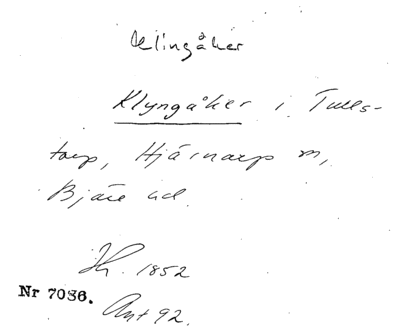 Klingåker
Klyngåker i Tulls-
torp, Hjärnarp sn,
Bjäre hd.
Jh. 1852
Nr 7086.
Ant 92.